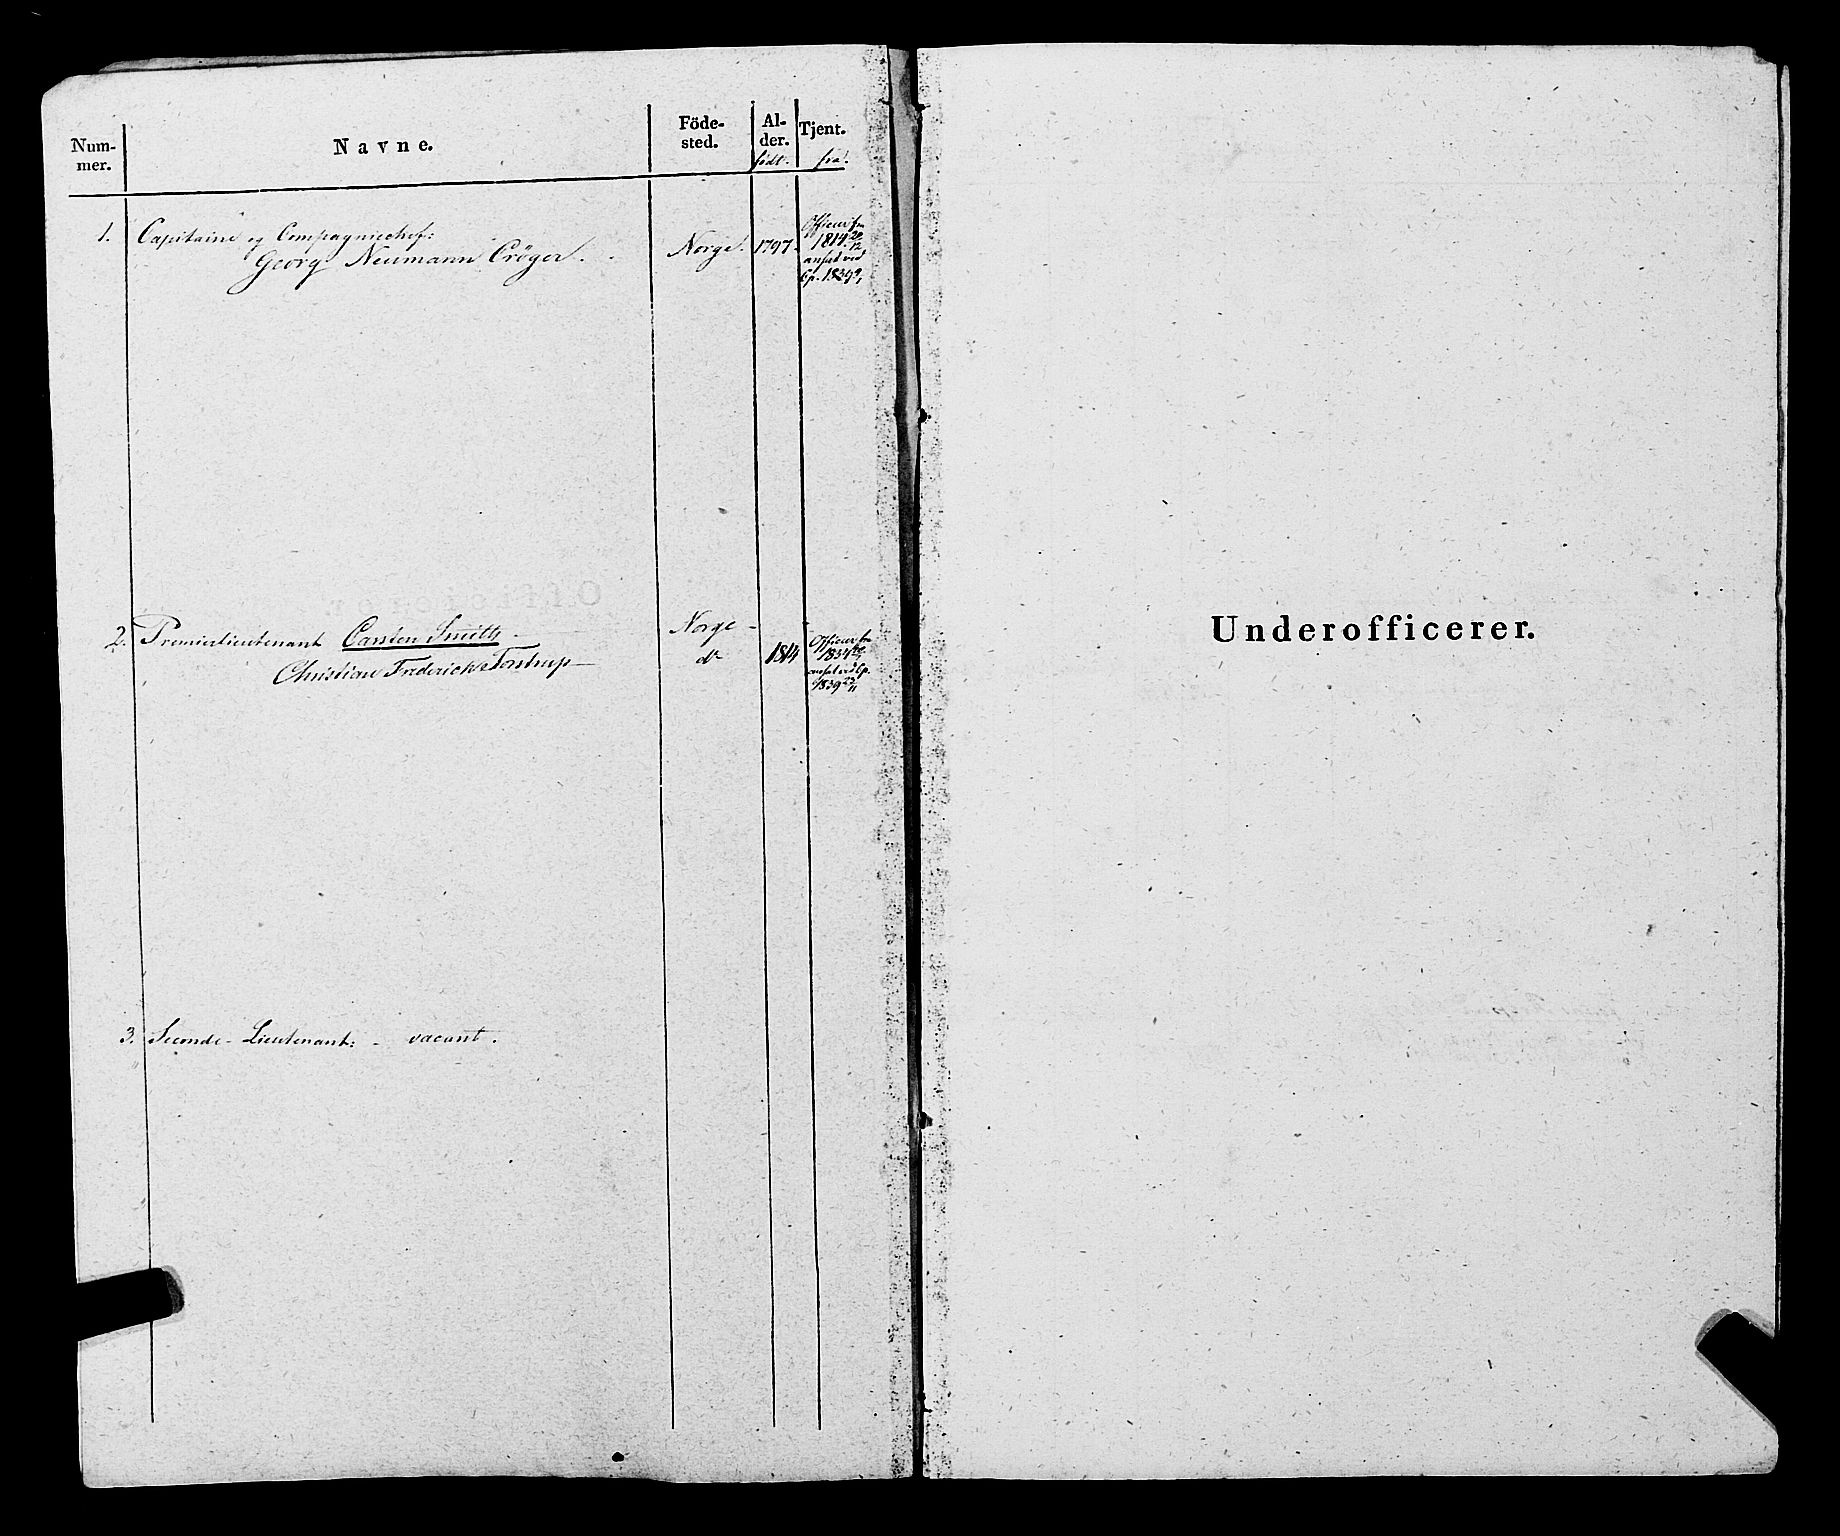 Num-
mer.
Navne.
Föde-
sted.
Al-
der.
födt.
Tjent.
fra.
1. Capitaine og Compagniechef:
Georg Neumann Cröger.
Norge. 1797.
Officier fra
1814 20/12
ansat ved
Cp. 1834
2. Premierlieutenant Carsten Smith
Norge
Christian Frederick Torstrup
do 1814
Officier fra
1834
ansat ved Cp.
1839 23/11
3. Seconde-Lieutenant: - vacant.
Underofficerer.